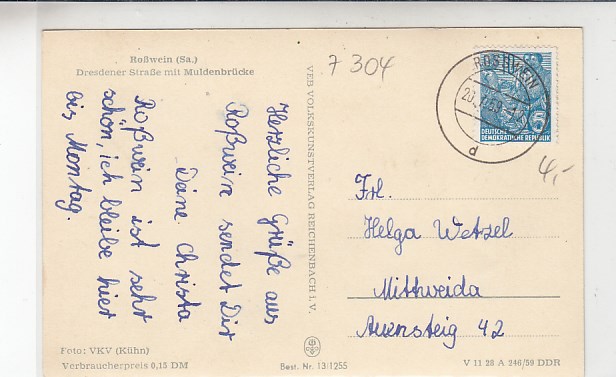 Roßwein (Sa.)
Dresdener Straße mit Muldenbrücke
Herzliche Grüße aus
Roßwein sendet Dir
Deine Christa
Roßwein ist sehr
schön, ich bleibe hier
bis Montag.
Foto: VKV (Kühn)
Verbraucherpreis 0,15 DM
VEB VOLKSKUNSTVERLAG REICHENBACH i. V.
Best. Nr. 13/1255
7 304
ROSSWEIN
d
5
DEUTSCHE
DEMOKRATISCHE REPUBLIK
4,-
Frl.
Helga Wetzel
Mittweida
Auensteig 42
V 11 28 A 246/59 DDR